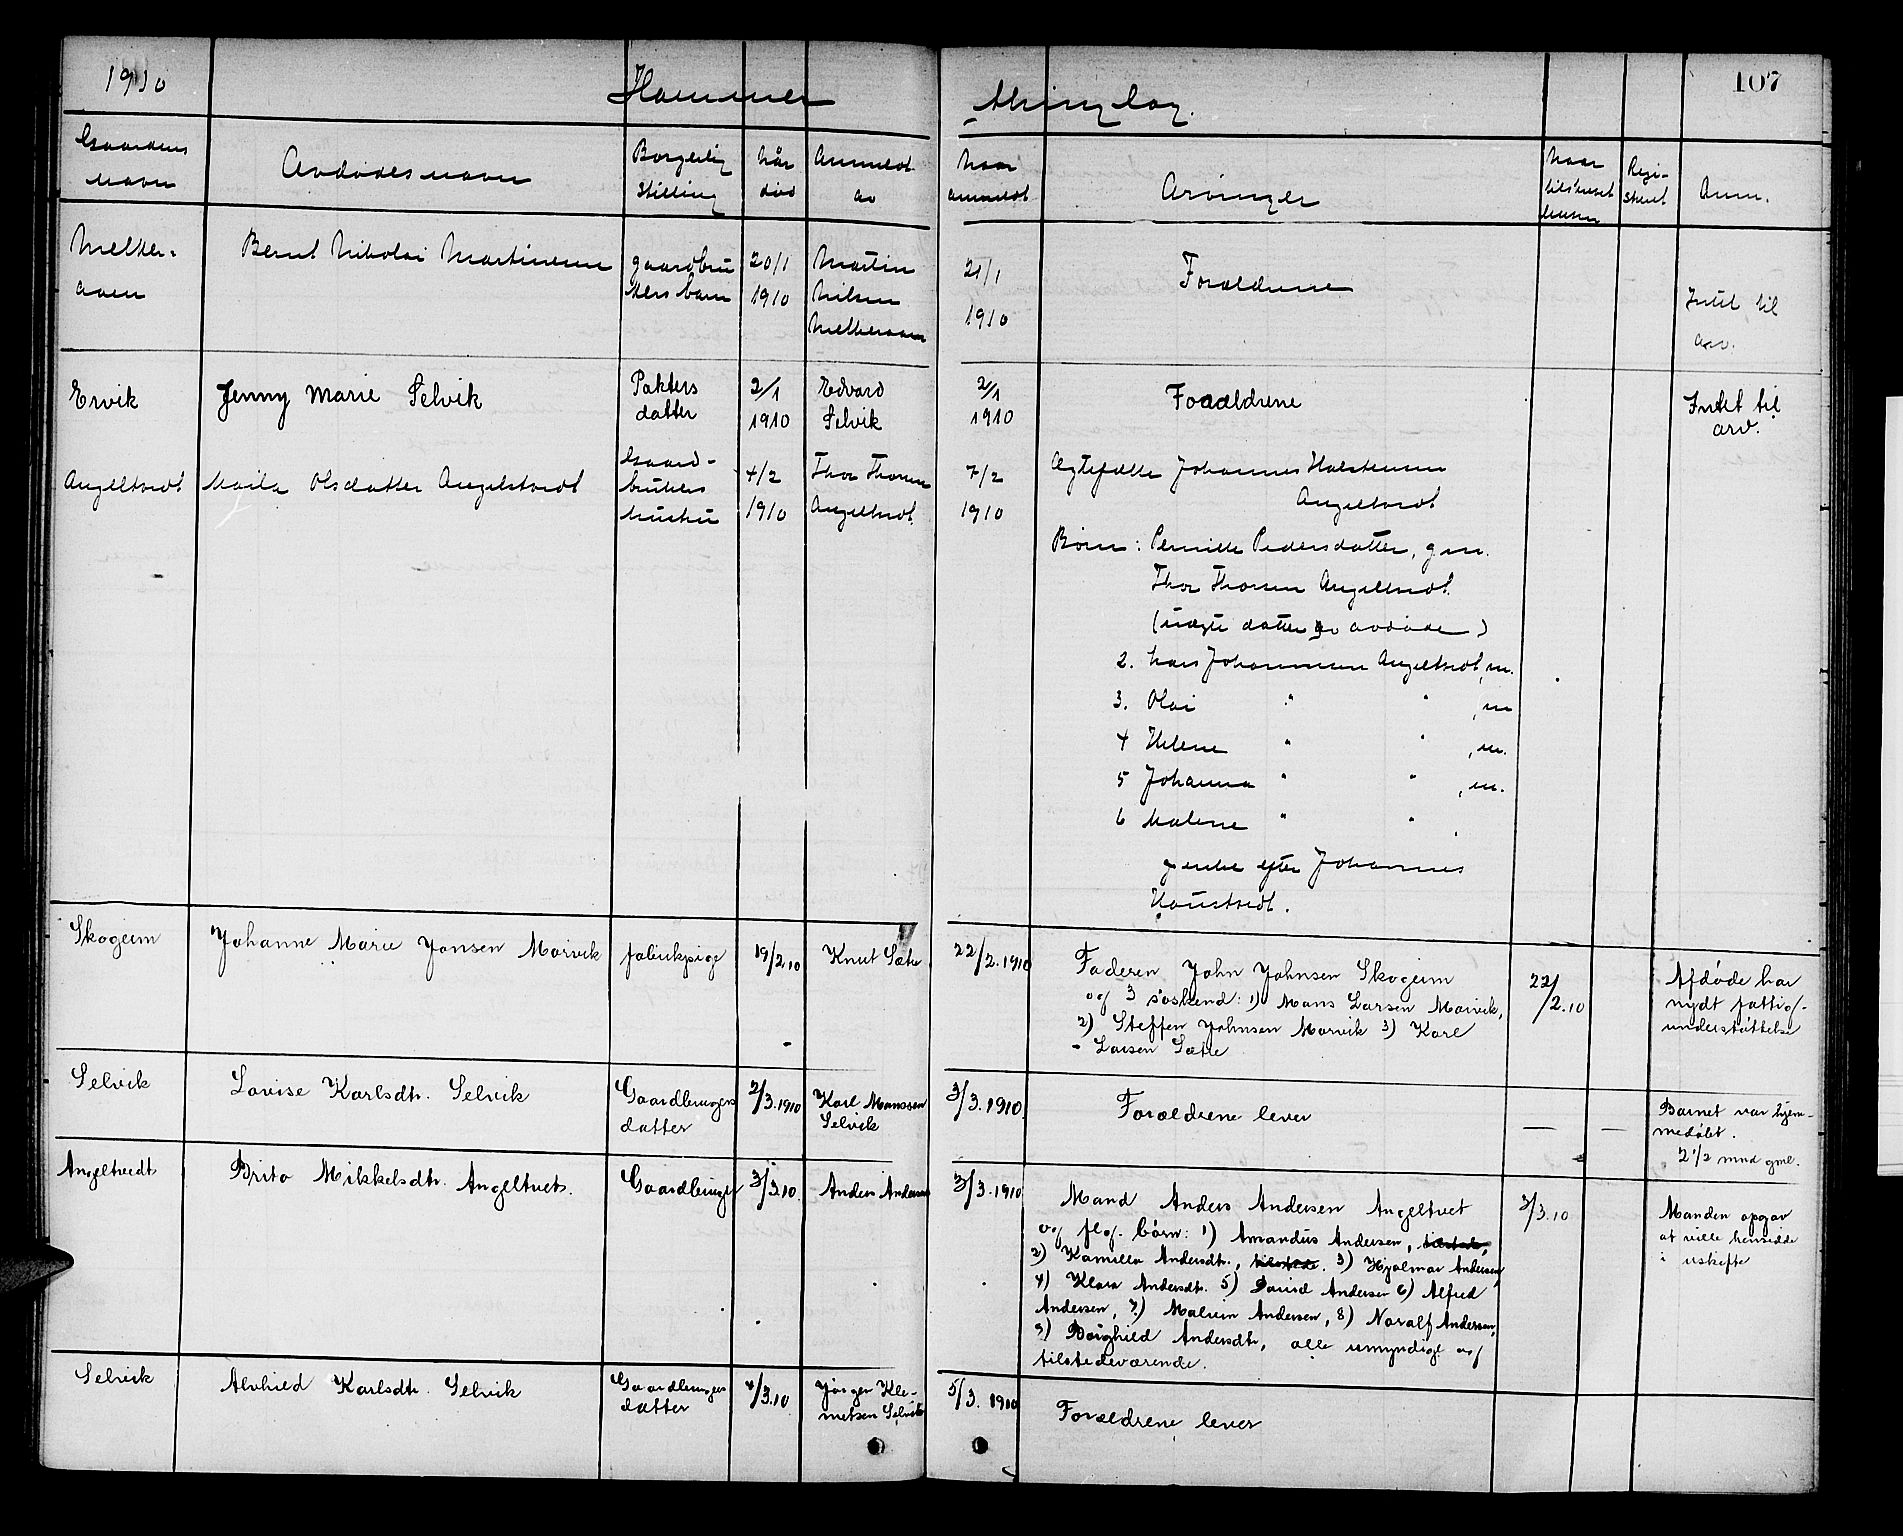 1910 Hammer thinglag. 107
Gaardens navn Avdødes navn Borgerlig stilling når død Anmeldt av Naar anmeldt Arvinger Naar tilskrevet Regi-streret Anm.
Melker-aaen Bernt Nikolai Martinesen gaardbru kers barn 20/1 1910 Martin Nilsen Melkeraaen 21/1 1910 Forældrene Intet til arv.
Ervik Jenny Marie Selvik Pakters datter 2/1 1910 Edvard Selvik 2/1 1910 Forældrene Intet til arv.
Angeltvedt Olsdatter Angeltvedt Gaard-brukers hustru 4/2 1910 Thor Thorsen Angeltvedt 7/2 1910 Ægtefælle Johannes
Angeltvedt
Børn: Pernille Pedersdatter, gm.
Thor Thorsen Angeltvedt
(uægte datter av avdøde)
2. Hans Johannesen Angeltvedt, m.
3. Olai " " , m
4 Helene " " , m.
5 Johanna " " , m.
6 Malene " " .
enke efter Johannes
Houctvedt.
Skogeim Johanne Marie Jonsen Morvik fabrikpige 19/2.10 Knut Sætre 22/2.1910 Faderen John Johnsen Skogeim
og 3 søskend: 1) Mons Larsen Morvik,
2) Steffen Johnsen Morvik 3) Karl
- Larsen Sætre 22/2.10 Afdøde har nydt fattig-understøttelse
Selvik Lovise Karlsdtr. Selvik Gaardbrugers datter 2/3.1910 Karl Monssen Selvik 3/3.1910. Forældrene lever — — Barnet var hjem-medøbt. 2 1/2 mnd gml.
Angeltvedt Brita Mikkelsdtr. Angeltvet. Gaardbruger 3/3.10. Anders Andersen 3/3.1910 Mand Anders Andersen Angeltvet
og flg. børn: 1) Amandus Andersen,
2) Kamilla Andersdtr., 3) Hjalmar Andersen
4) Klara Andersdtr. 5) David Andersen 6) Alfred
Andersen, 7) Malvin Andersen, 8) Noralf Andersen,
9) Borghild Andersdtr, alle umyndige og
tilstedeværende. 3/3.10 Manden opgav at ville hensidde i uskifte
Selvik Alvhild Karlsdtr. Selvik Gaardbrugers datter 4/3.10 Jørgen Kle-metsen Selvik 5/3. 1910 Forældrene lever